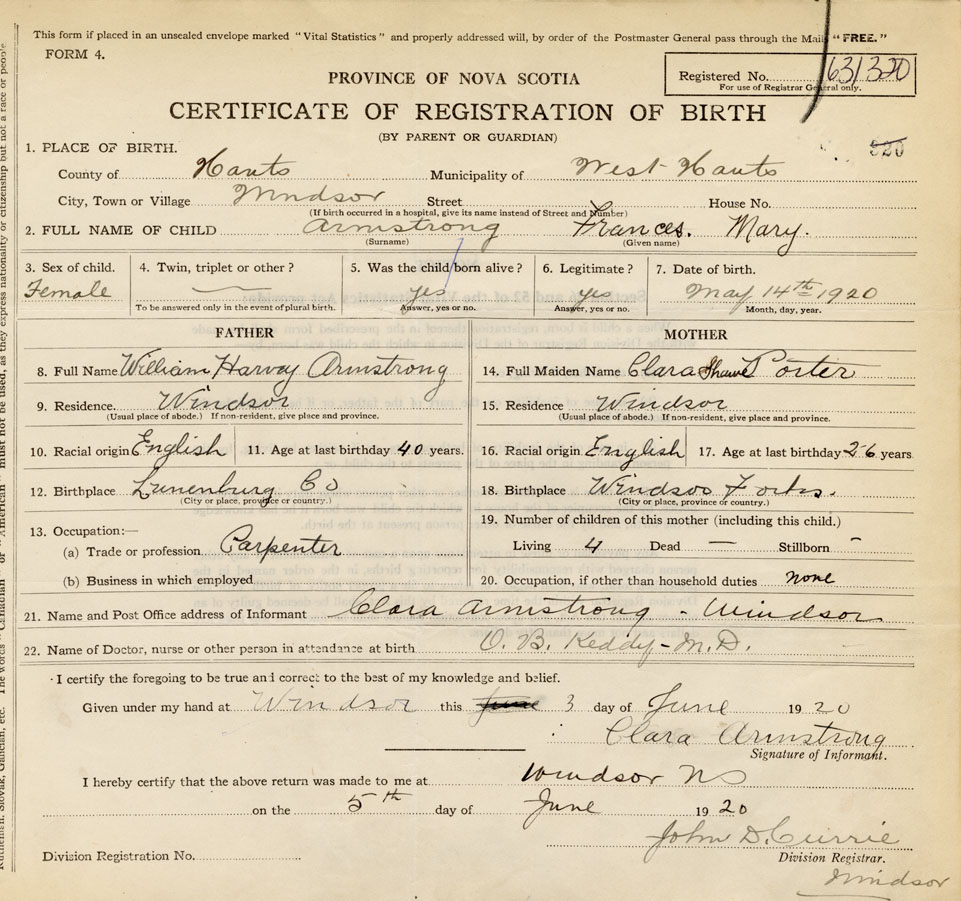 This form if placed in an unsealed envelope marked "Vital Statistics" and properly addressed will, by order of the Postmaster General pass through the Mail "FREE."
FORM 4.
PROVINCE OF NOVA SCOTIA
Registered No. 631320
For use of Registrar General only.
CERTIFICATE OF REGISTRATION OF BIRTH
(BY PARENT OR GUARDIAN)
320
1. PLACE OF BIRTH.
County of Hants Municipality of West Hants
City, Town or Village Windsor Street House No.
(If birth occurred in a hospital, give its name instead of Street and Number)
2. FULL NAME OF CHILD Armstrong Frances. Mary.
(Surname) (Given name)
3. Sex of child. 4. Twin, triplet or other? 5. Was the child born alive? 6. Legitimate? 7. Date of birth.
Female — yes yes May 14th 1920
To be answered only in the event of plural birth. Answer, yes or no. Answer, yes or no. Month, day, year.
FATHER
8. Full Name William Harvay Armstrong
9. Residence. Windsor
(Usual place of abode.) If non-resident, give place and province.
10. Racial origin English 11. Age at last birthday 40 years.
12. Birthplace Lunenburg Co
(City or place, province or country.)
13. Occupation:—
(a) Trade or profession Carpenter
(b) Business in which employed
MOTHER
14. Full Maiden Name Clara Shawe Porter
15. Residence Windsor
(Usual place of abode.) If non-resident, give place and province.
16. Racial origin English 17. Age at last birthday 26 years
18. Birthplace Windsor Forks.
(City or place, province or country.)
19. Number of children of this mother (including this child.)
Living 4 Dead — Stillborn -
20. Occupation, if other than household duties none
21. Name and Post Office address of Informant Clara Armstrong - Windsor
22. Name of Doctor, nurse or other person in attendance at birth O. B. Keddy - M.D.
I certify the foregoing to be true and correct to the best of my knowledge and belief.
Given under my hand at Windsor this June 3 day of June 1920
Clara Armstrong
Signature of Informant.
I hereby certify that the above return was made to me at Windsor NS
on the 5th day of June 1920
John D. Currie
Division Registration No. Division Registrar.
Windsor